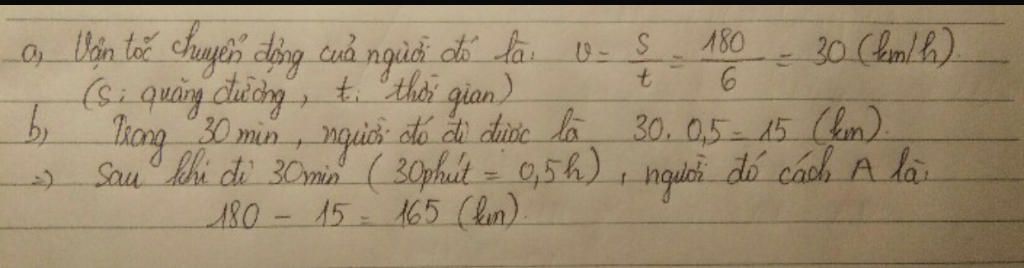 a, Vận tốc chuyển động của người đó là: v = s/t = 180/6 = 30 (km/h).
(s: quãng đường, t: thời gian)
b, Trong 30 min, người đó đi được là 30. 0,5 = 15 (km).
=> Sau khi đi 30min (30phút = 0,5h), người đó cách A là:
180 - 15 = 165 (km).